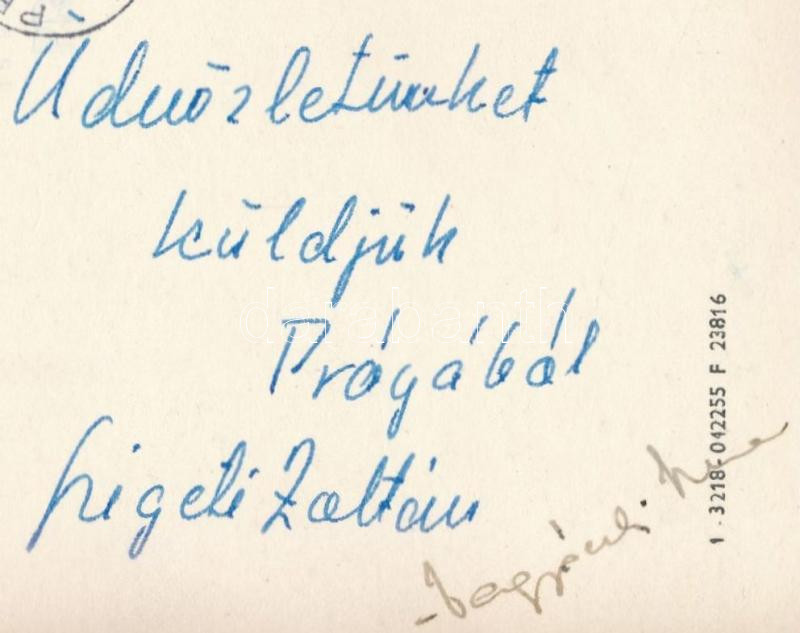 Üdvözletünket
küldjük
Prágából
Szigeti Zoltán
1 3218-042255 F 23816
darabanth